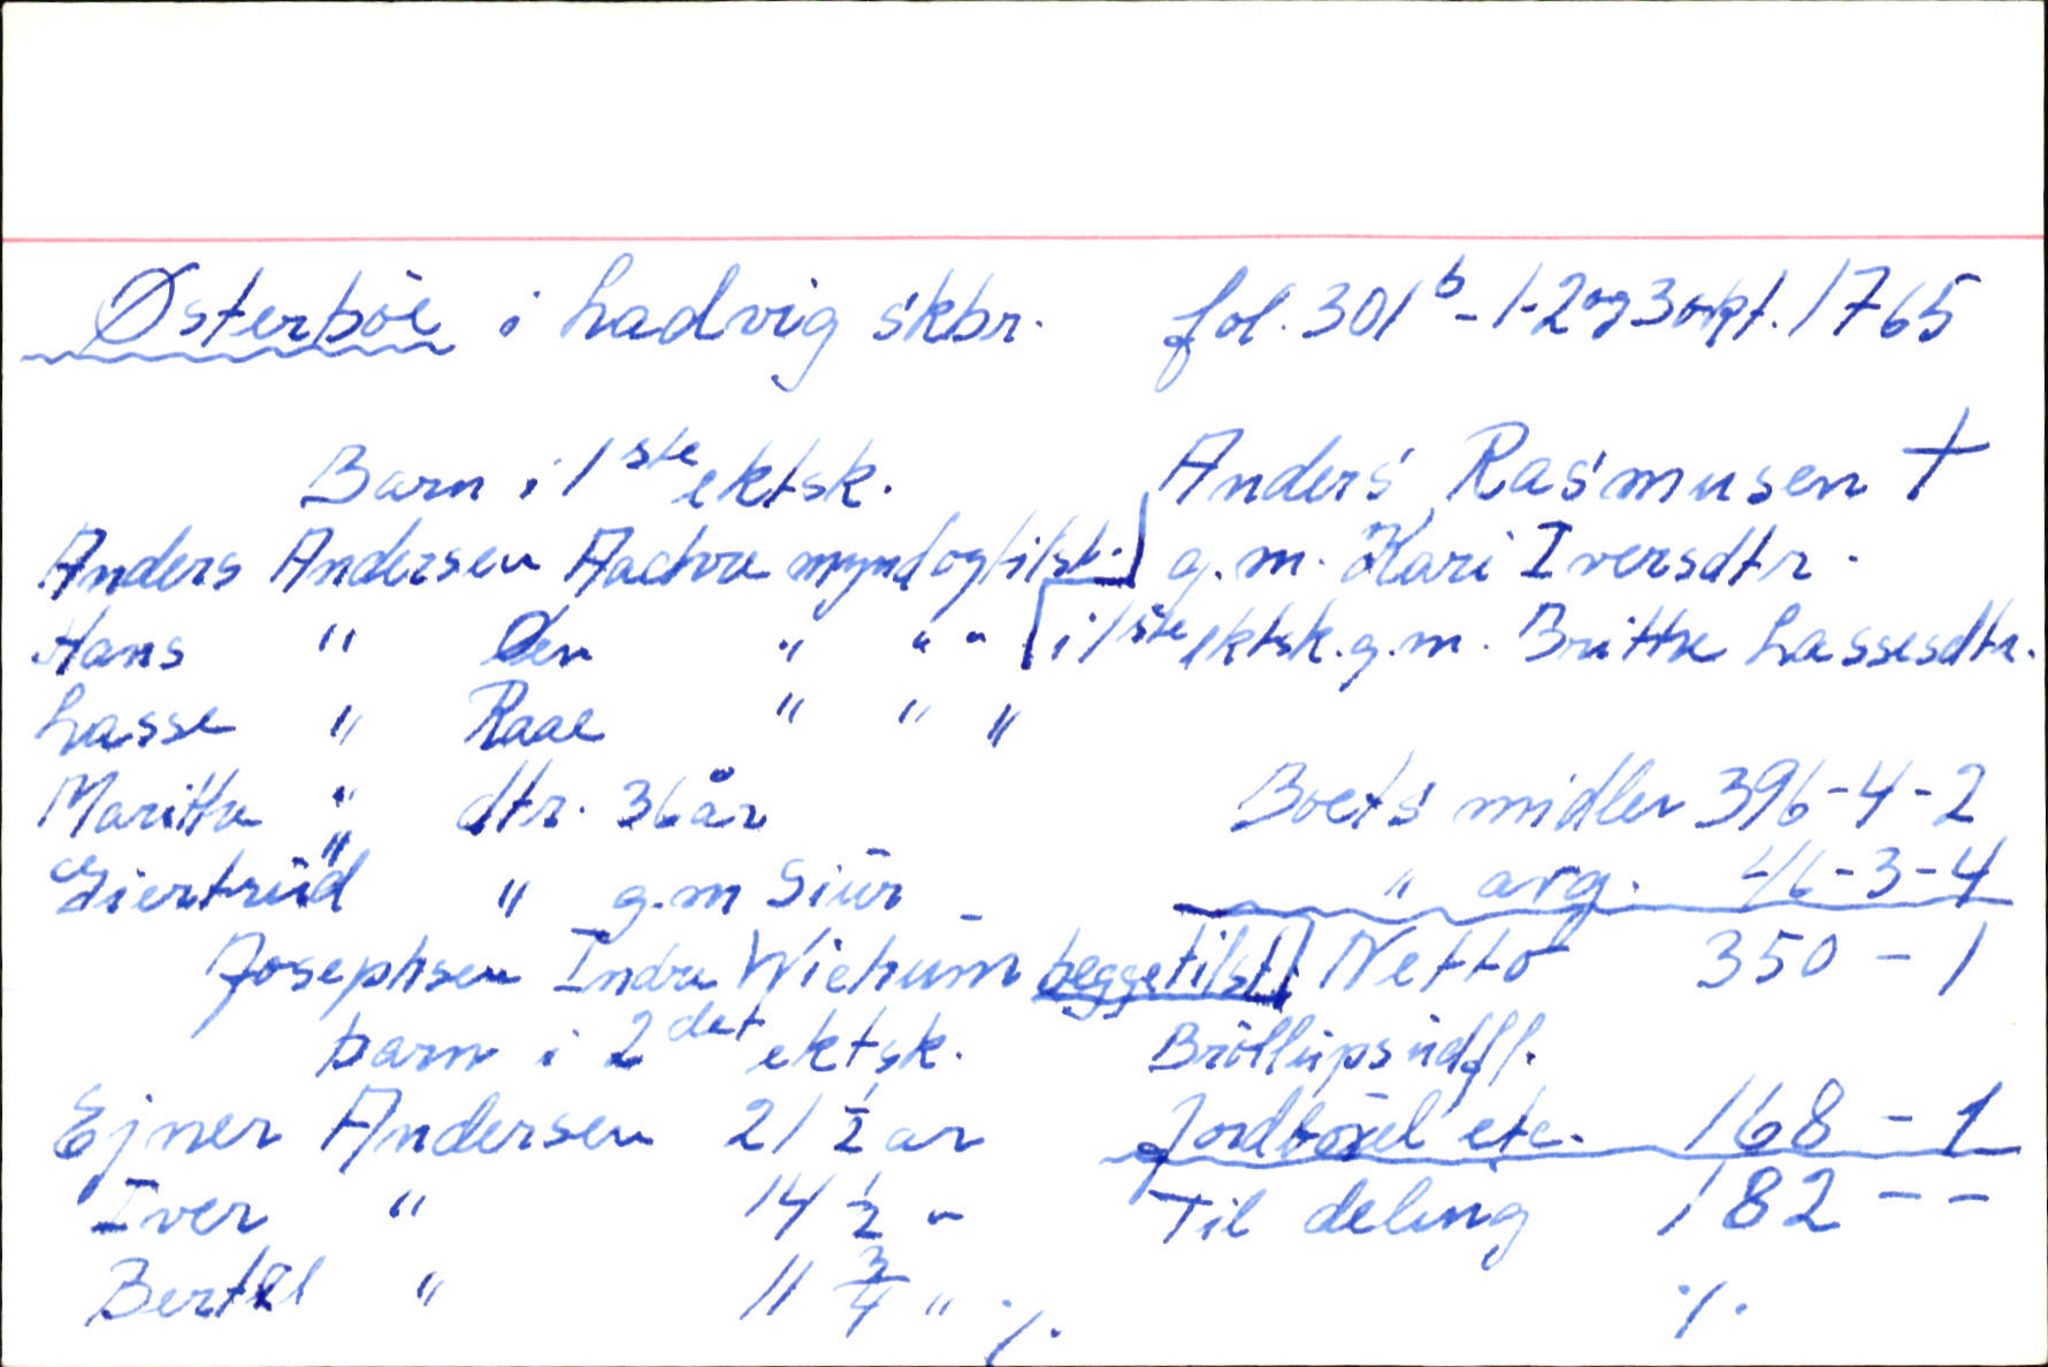 Østerböe i Ladvig skbr. fol. 301b - 1-2 og 3 okt. 1765
Barn i 1ste ektsk.
Anders Andersen Aachre mynd og tilst.
Hans " Øen " " "
Lasse " Raae " " "
Maritha " dtr. 36 år
Giertrüd " " g.m Siür
Josephsen Indre Wichum begge tilst
barn i 2det ektsk.
Ejner Andersen 21 1/2 ar
Iver " 14 1/2 "
Bertel " 11 3/4 " ./.
Anders Rasmusen †
g.m. Kari Iversdtr.
i 1ste ektsk. g.m. Britthe Lassesdtr.
Boets midler 396-4-2
" avg. 46-3-4
Netto 350 - 1
Bröllüpsüdfl.
Jordböxel etc. 168 - 1
Til deling 182 - -
./.